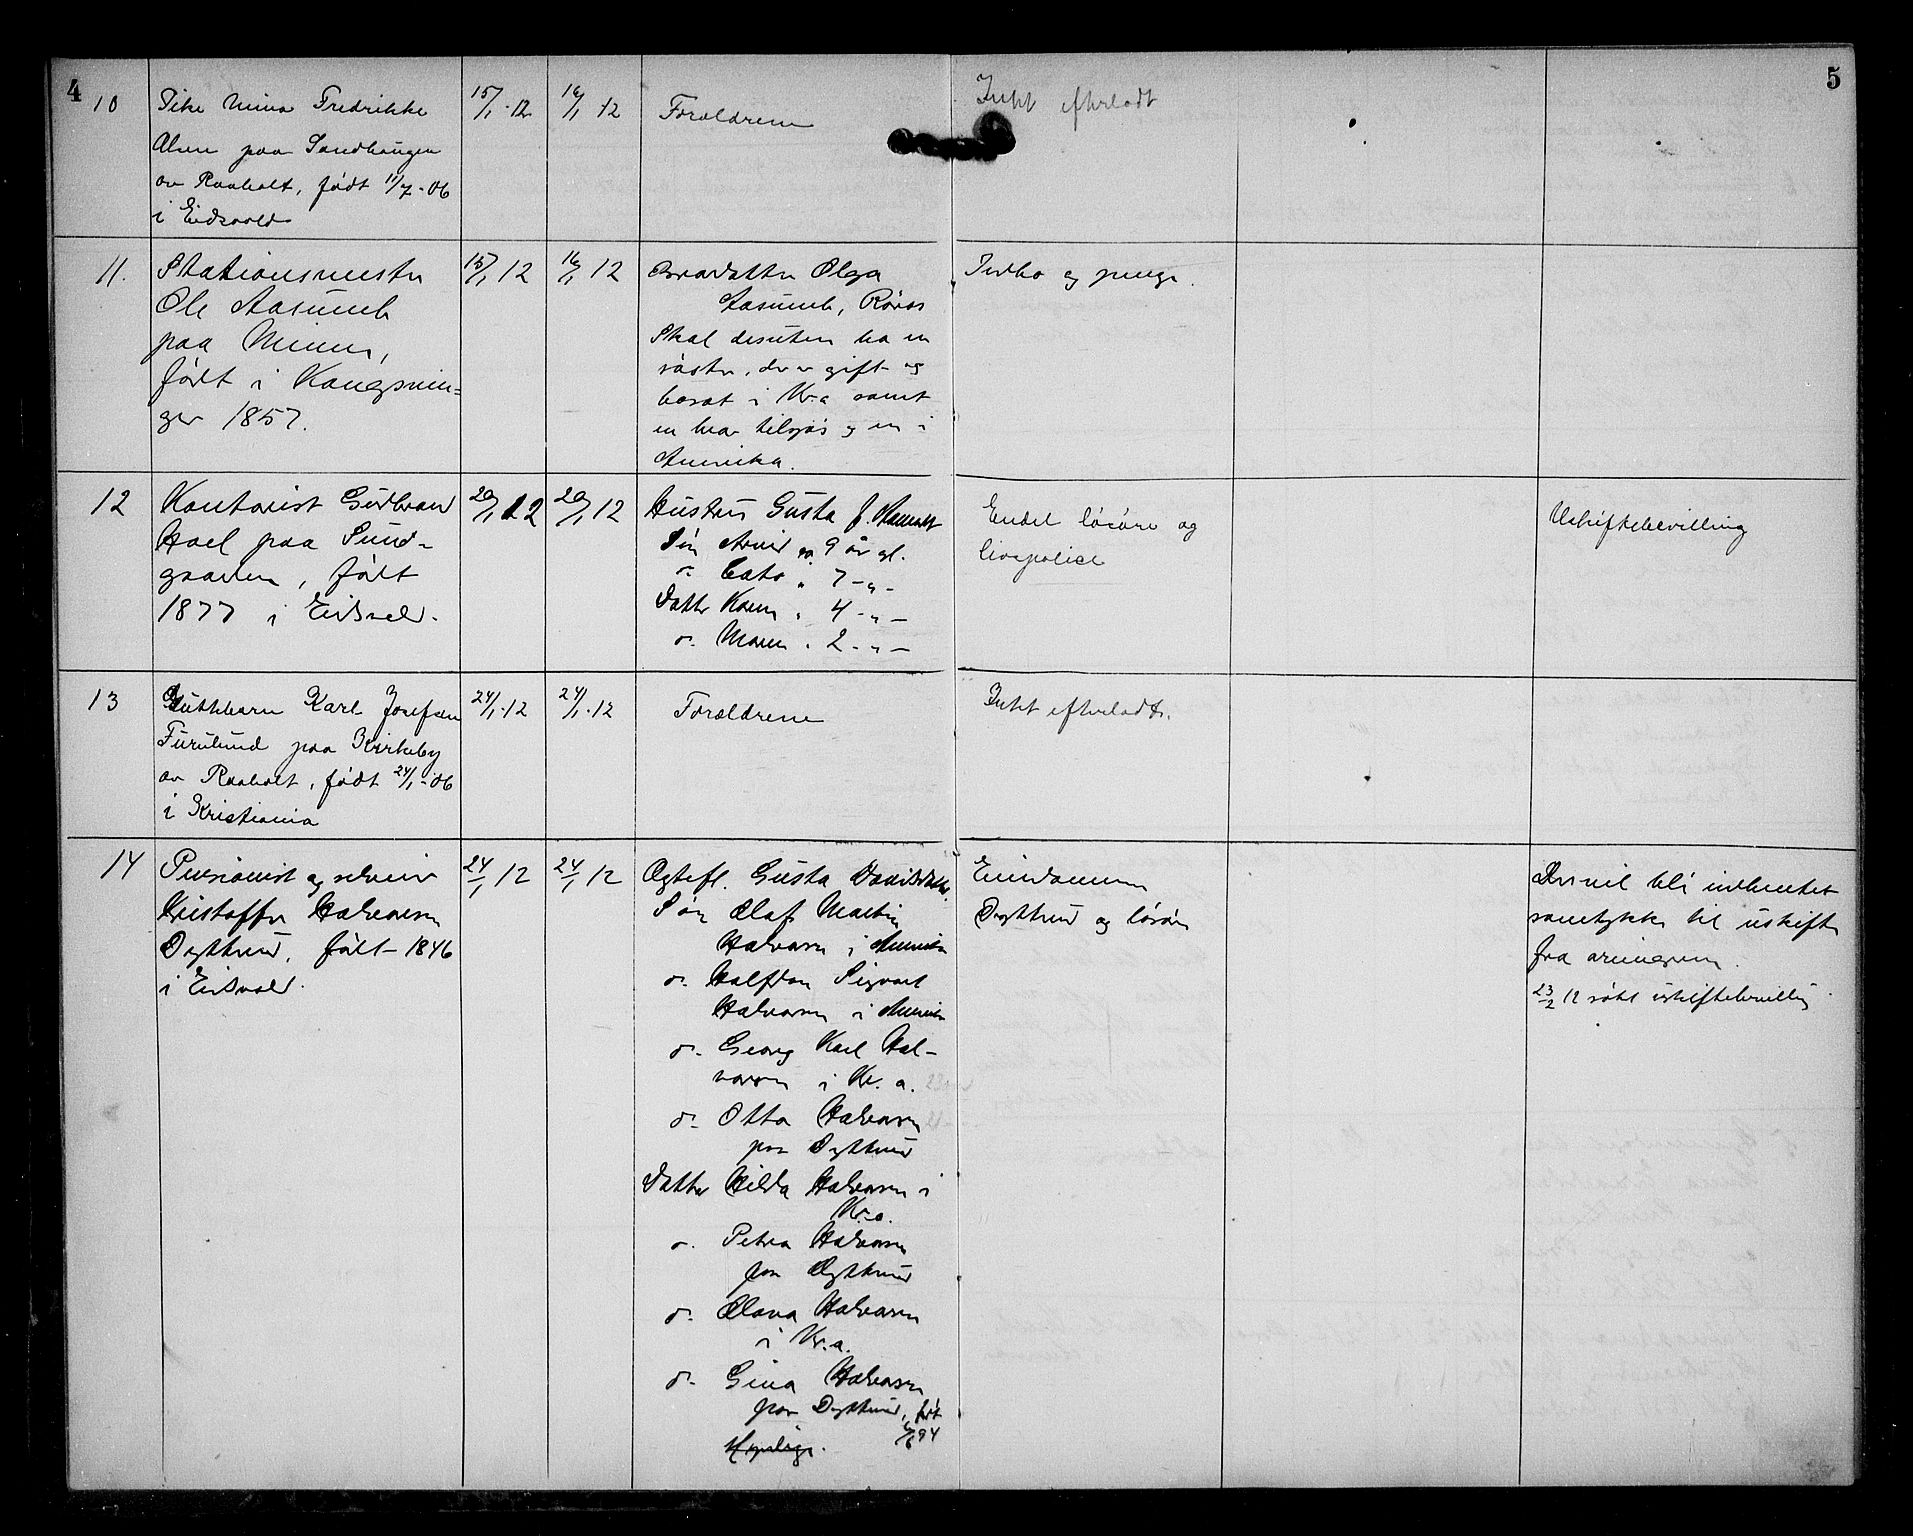 4
5
10
Pike Mina Fredrikke
Olsen paa Sandhaugen
av Raaholt, født 11/7-06
i Eidsvold
15/1-12
16/1-12
Forældrene
Intet efterladt
11.
Stationsmester
Ole Aasumb
paa Minne,
født i Kongsvin-
ger 1857.
15/1 12
16/1 12
Brordatter Olga
Aasumb, Røros
Skal desuten ha en
søster, der er gift og
bosat i Kr.a samt
en bror tilsjøs og en i
Amerika.
Indbo og penge.
12
Kontorist Gudbran
Hoel paa Sund-
gaarden, født
1877 i Eidsvold.
20/1 12
20/1 12
Hustru Gusta f.
Søn Arvid " 9 år gl.
d. Cato " 7 - " -
Datter Karen " 4 - " -
d. Maren " 2 - " -
Endel løsøre og
livspolice
Uskiftebevilling
13
Guttebarn Karl Josefsen
Furulund paa Kirkeby
av Raaholt, født 24/1-06
i Kristiania
24/1-12
24/1-12
Forældrene
Intet efterladt.
14
Pensionist og selveier
Kristoffer Halvorsen
Dyttrud, født 1846
i Eidsvold.
24/1 12
24/1 12
Ægtef. Gusta Davidsdtr.
Søn Olaf Martin
Halvorsen i Amerika
d. Halfdan Sigvart
Halvorsen i Amerika
d. Georg Karl Hal-
vorsen i Kr. a.
d. Otto Halvorsen
paa Dyttrud
Datter Hilda Halvorsen i
Kr.a.
d. Petra Halvorsen
paa Dyttrud
d. Olava Halvorsen
i Kr.a.
d. Gina Halvorsen
paa Dyttrud, født
6/6 94
Eiendommen
Dyttrud og løsøre
Der vil bli indhentet
samtykke til uskifte
fra arvingerne.
23/2 12 søkt uskiftebevilling